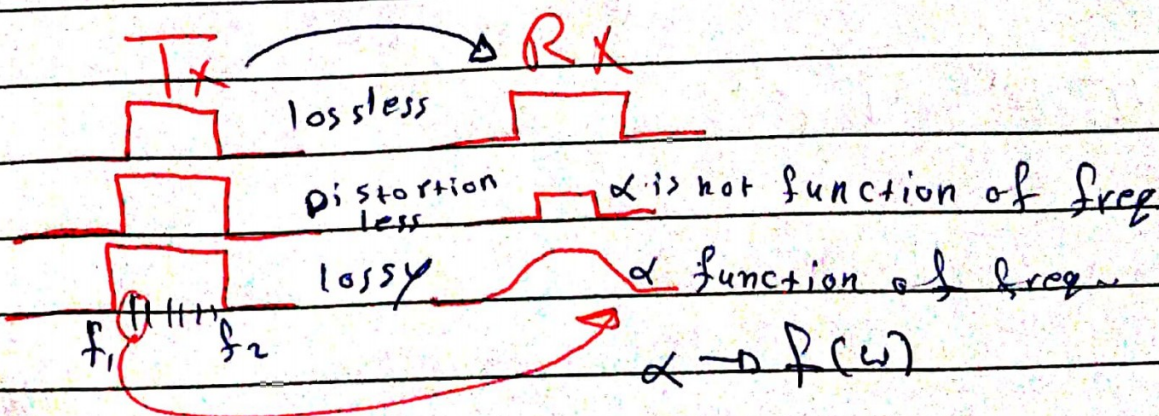 Tx Rx
lossless
Distortion less α is not function of freq
lossy α function of freq.
f₁ f₂
α → f(ω)